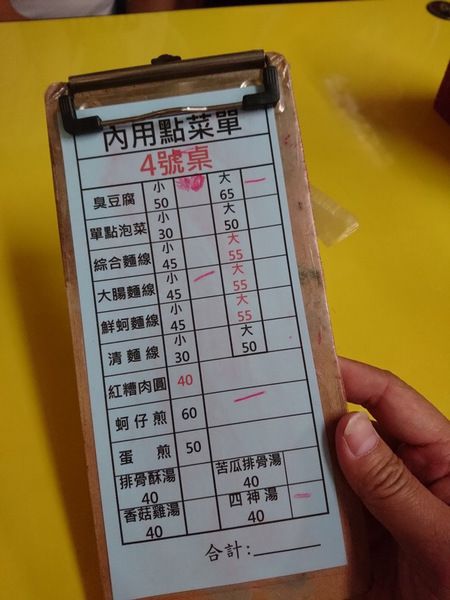 內用點菜單
4號桌
臭豆腐 小50 大65
單點泡菜 小30 大50
綜合麵線 小45 大55
大腸麵線 小45 大55
鮮蚵麵線 小45 大55
清麵線 小30 大50
紅糟肉圓 40
蚵仔煎 60
蛋煎 50
排骨酥湯40 苦瓜排骨湯40
香菇雞湯40 四神湯40
合計: